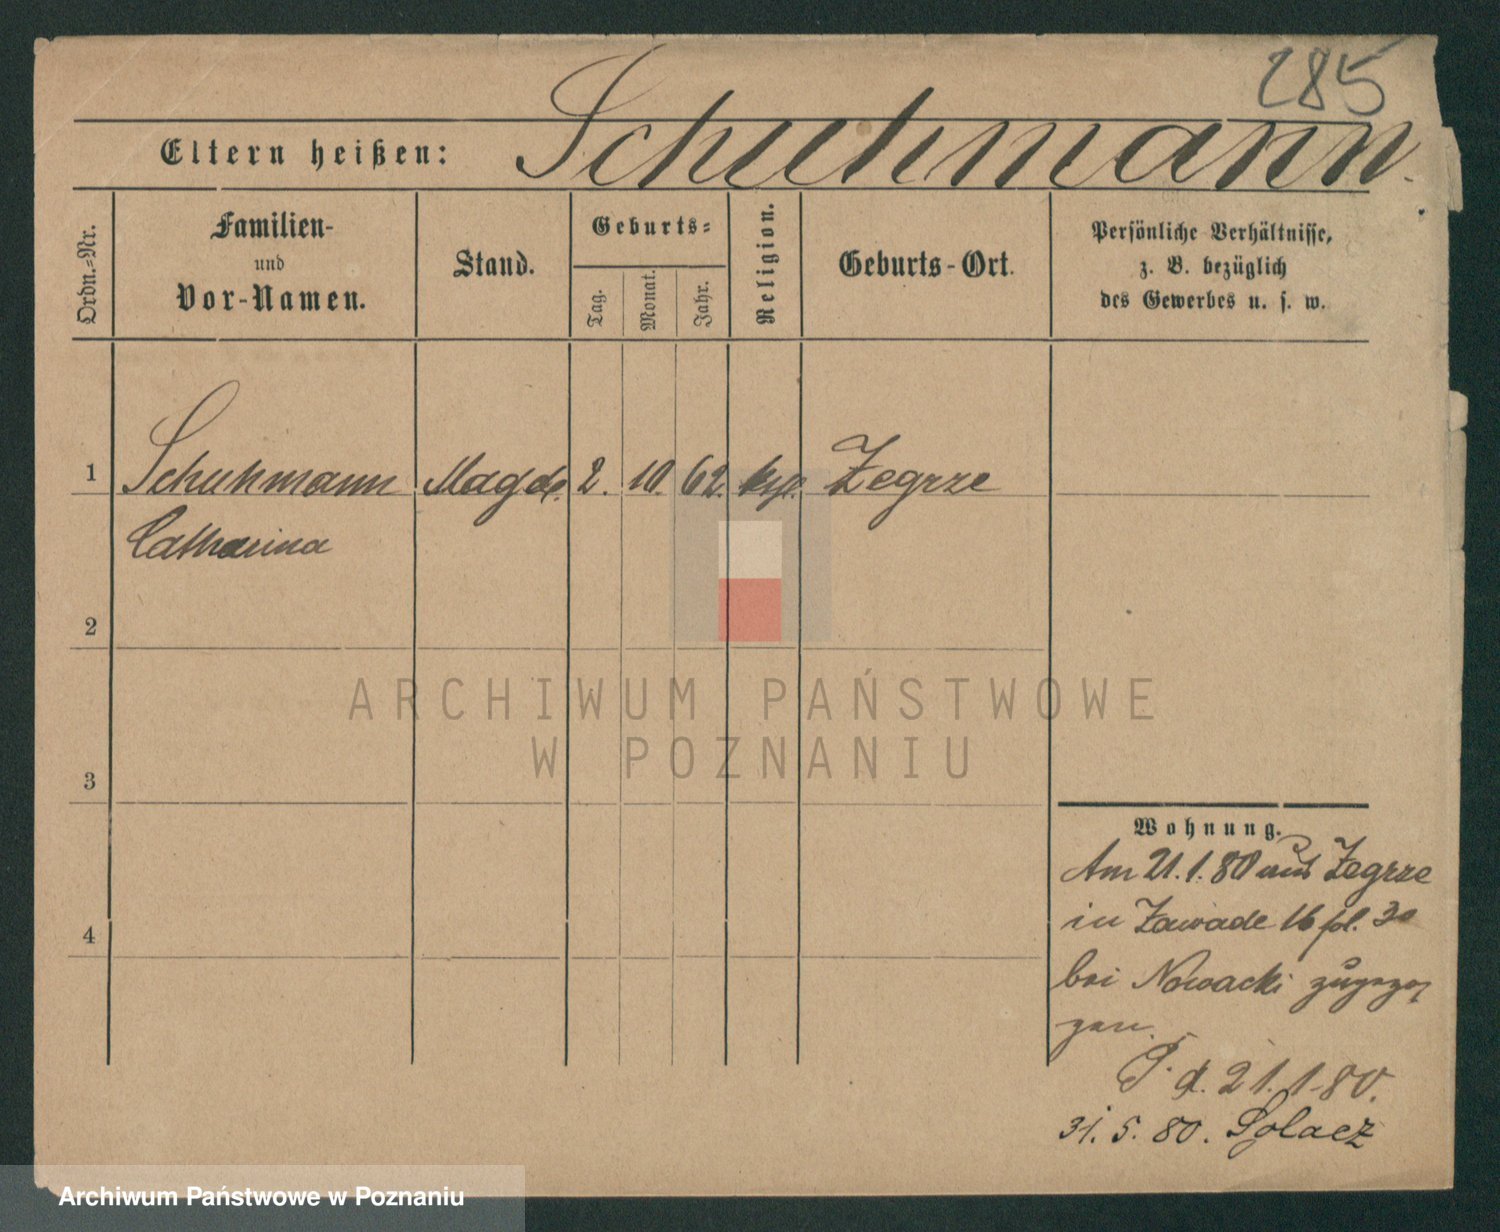 285
Eltern heißen: Schuhmann.
Ordn.-Nr.
Familien-
und
Vor-Namen.
Stand.
Geburts-
Tag.
Monat.
Jahr.
Religion.
Geburts-Ort.
Persönliche Verhältnisse,
z. B. bezüglich
des Gewerbes u. s. w.
1 Schuhmann Magd. 2. 10. 62. Zegrze
Catharina
2
3
4
ARCHIWUM PAŃSTWOWE
W POZNANIU
Wohnung.
Am 21.1.80 aus Zegrze
in Zawade 16 fol. 30
bei Nowacki zugezo
gen.
P. d. 21.1.80.
31. 5. 80. Solacz
Archiwum Państwowe w Poznaniu